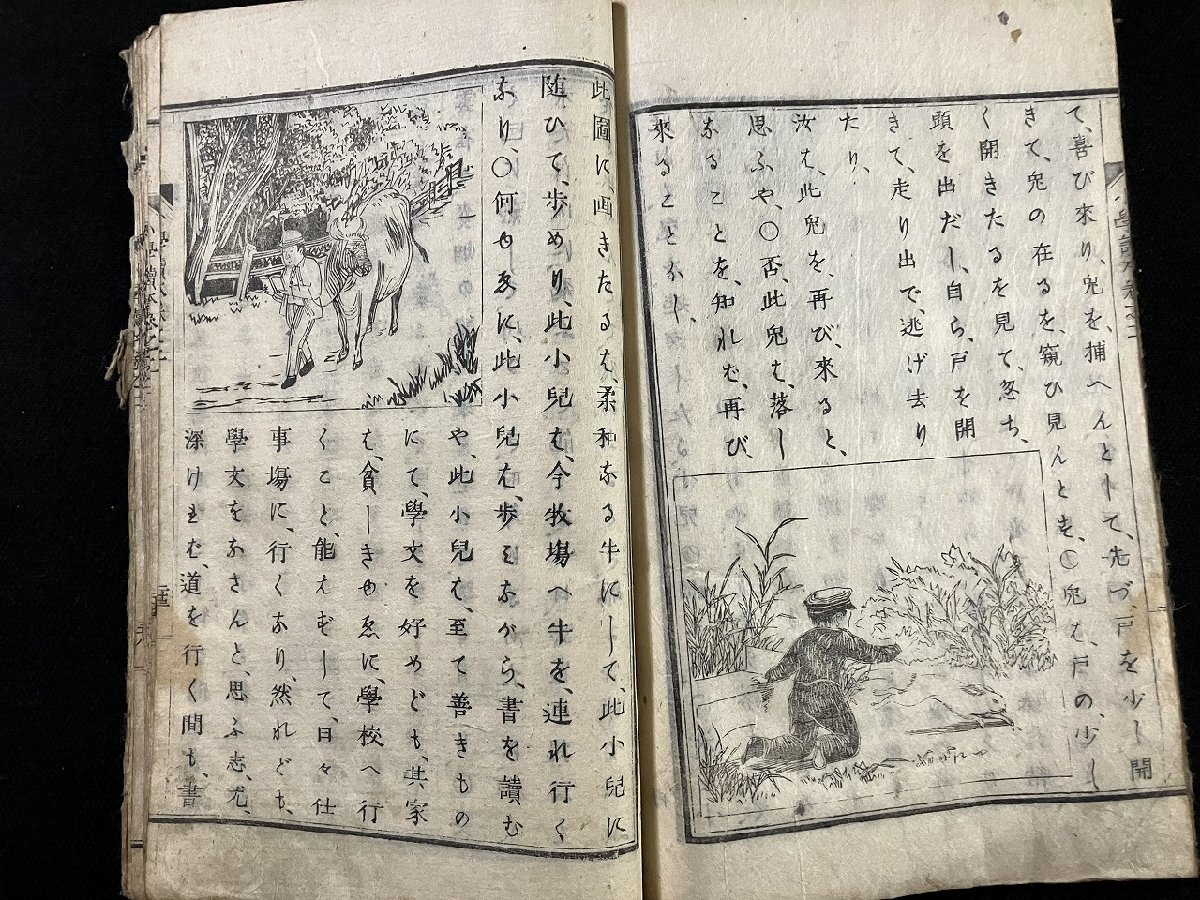 て、喜び來り、兎を、捕へんとして、先づ、戸を少し開
きて、兎の在るを、窺ひ見んとも、〇兎も、戸の、少し
く開きたるを見て、忽ち、
頭を出だし、自ら、戸を開
きて、走り出で、逃げ去り
たり、
汝も、此兎を、再び、來ると、
思ふや、〇否、此兎も、落し
なることを、知れば、再び、
來ることなし、
此圖に、画きたるは、柔和なる牛にして、此小兒に
随ひて、歩めり、此小兒は、今牧場へ牛を、連れ行く
なり、〇何ゆゑに、此小兒は、歩みながら、書を讀む
や、此小兒は、至て善きもの
にて、學文を好めども、其家
は、貧しきゆゑに、學校へ行
くこと、能はずして、日々仕
事場に、行くなり、然れども、
學文をなさんと、思ふ志、尤、
深ければ、道を行く間も、書